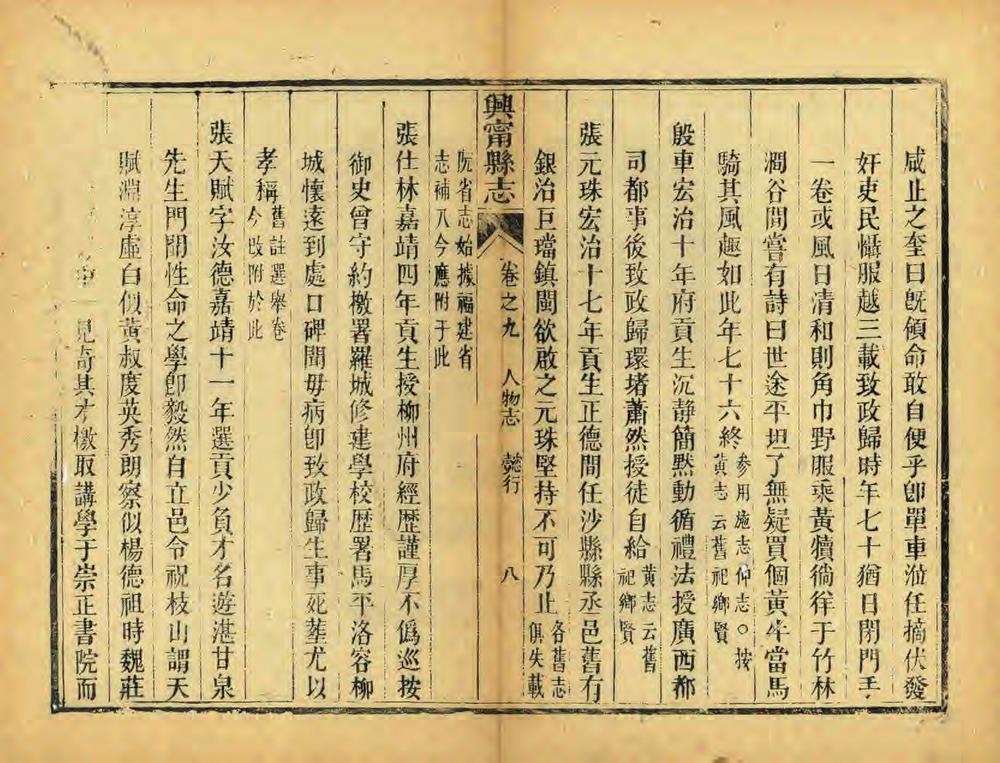 咸止之奎曰旣領命敢自便乎卽單車涖任摘伏發
奸吏民懾服越三載致政歸時年七十猶日閉門手
一卷或風日清和則角巾野服乘黃犢徜徉于竹林
澗谷間嘗有詩曰世途平坦了無疑買個黃牛當馬
騎其風趣如此年七十六終參用施志仲志○按黃志云舊祀鄉賢
殷車宏治十年府貢生沉静簡默動循禮法授廣西都
司都事後致政歸環堵蕭然授徒自給黃志云舊祀鄉賢
張元珠宏治十七年貢生正德間任沙縣縣丞邑舊有
銀冶巨璫鎮閩欲啟之元珠堅持不可乃止各舊志俱失載
阮省志始據福建省志補入今應附于此
興甯縣志 卷之九 人物志 懿行 八
張仕林嘉靖四年貢生授柳州府經歷謹厚不僞巡按
御史曾守約檄署羅城修建學校歷署馬平洛容柳
城懷遠到處口碑聞母病卽致政歸生事死葬尤以
孝稱舊註選舉卷今改附於此
張天賦字汝德嘉靖十一年選貢少負才名遊湛甘泉
先生門闢性命之學卽毅然自立邑令祝枝山謂天
賦淵淳虛白似黃叔度英秀朗察似楊德祖時魏莊
一見奇其才檄取講學于崇正書院而